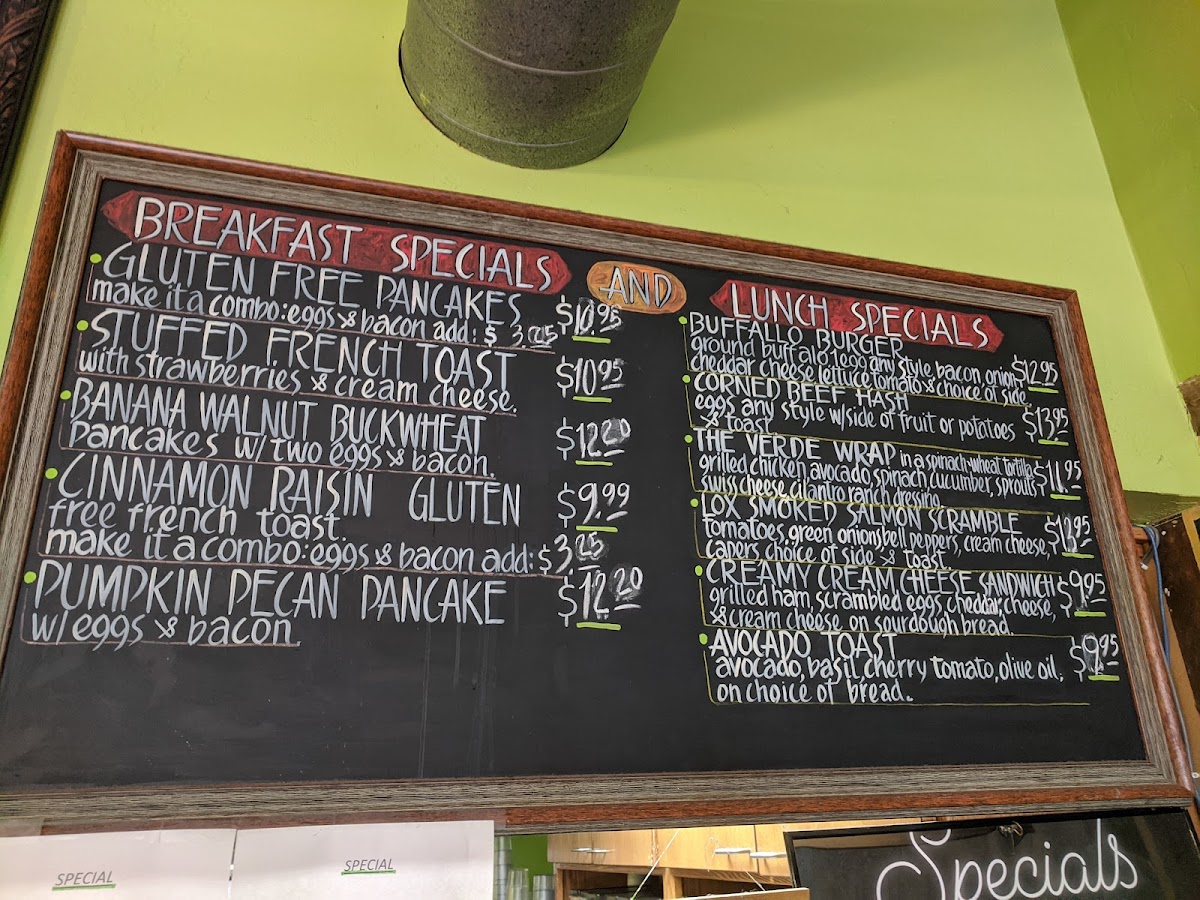 BREAKFAST SPECIALS
GLUTEN FREE PANCAKES $10.95
make it a combo: eggs & bacon add: $3.25
STUFFED FRENCH TOAST
with strawberries & cream cheese. $10.95
BANANA WALNUT BUCKWHEAT
Pancakes w/ two eggs & bacon. $12.20
CINNAMON RAISIN GLUTEN $9.99
free french toast.
make it a combo: eggs & bacon add: $3.25
PUMPKIN PECAN PANCAKE $12.20
w/ eggs & bacon
AND
LUNCH SPECIALS
BUFFALLO BURGER
ground buffalo 1 egg any style bacon, onion, $12.95
cheddar cheese lettuce tomato & choice of side
CORNED BEEF HASH
eggs any style w/side of fruit or potatoes $13.95
& toast
THE VERDE WRAP in a spinach-wheat tortilla
grilled chicken avocado, spinach cucumber, sprouts $11.95
swiss cheese, cilantro ranch dressing
LOX SMOKED SALMON SCRAMBLE $13.95
tomatoes, green onions, bell peppers, cream cheese,
capers choice of side & toast.
CREAMY CREAM CHEESE SANDWICH $9.95
grilled ham, scrambled eggs, cheddar, cheese,
& cream cheese on sourdough bread.
AVOCADO TOAST $9.95
avocado, basil, cherry tomato, olive oil,
on choice of bread.
SPECIAL
SPECIAL
Specials